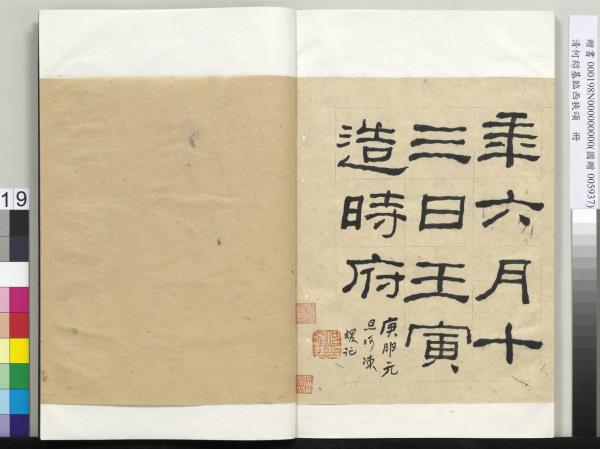 贈書 000198N000000000(國贈 005937)
清何紹基臨西狹頌 冊
年六月十
三日壬寅
造時府
庚元
旦呵凍
蝯記
19